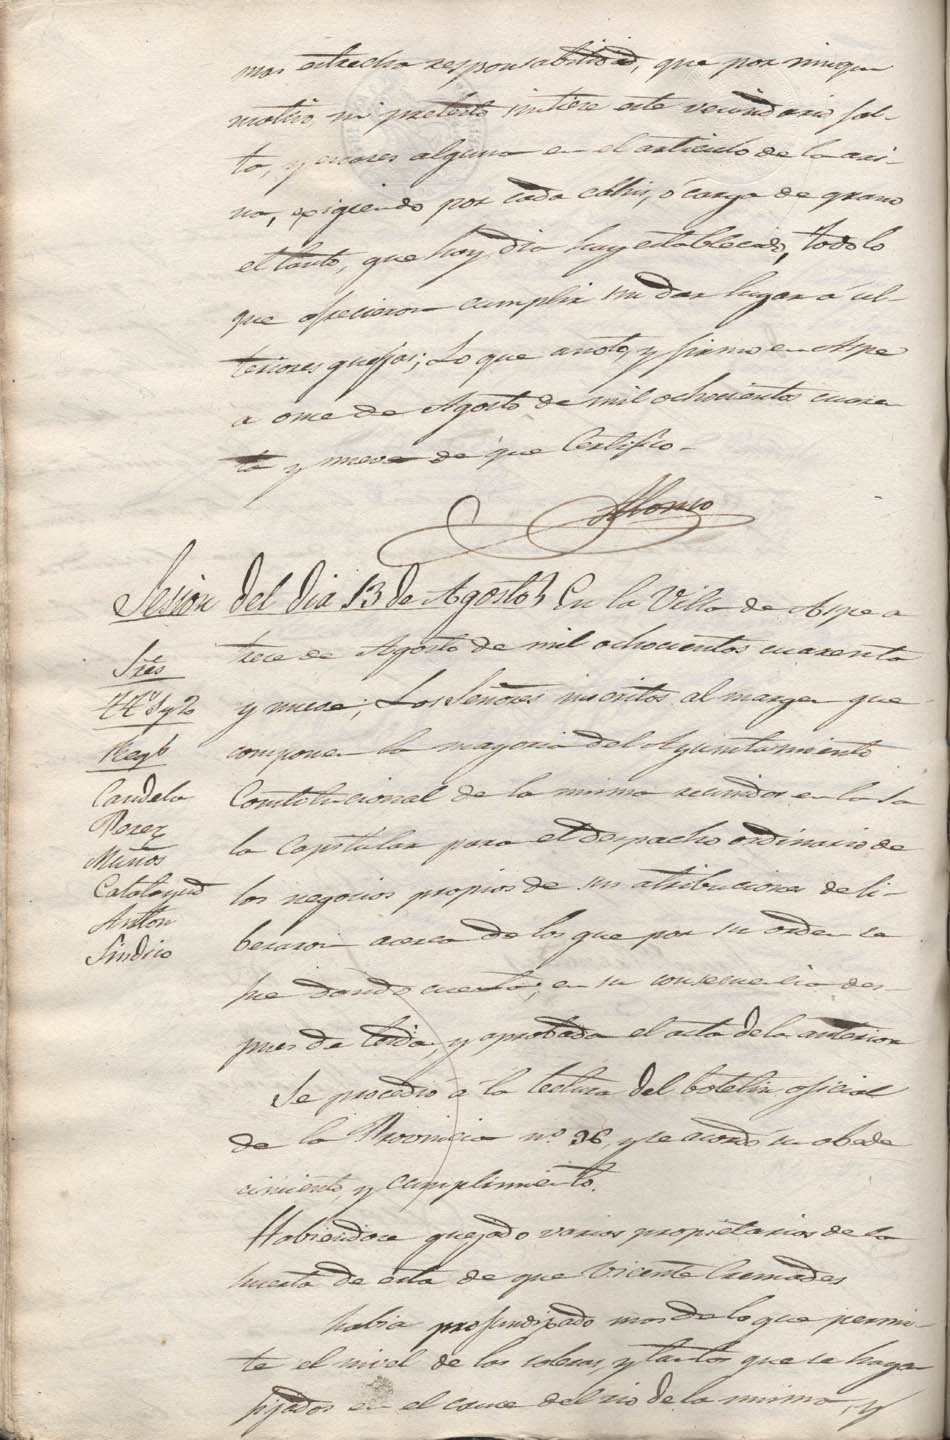 mas estrecha responsabilidad, que por ningun
motivo, ni pretesto sintiese este vecindario fal-
ta, y escases alguna en el articulo de la ari-
na, exigiendo por cada cahis, ó carga de grano
el tanto, que hoy dia hay establecido, todo lo
que ofrecieron cumplir sin dar lugar á ul-
teriores quejas; Lo que anoto, y firmo en Aspe
a once de Agosto de mil ochocientos cuaren
ta y nueve de que Certifico-
Alonso
Sesion del dia 13 de Agosto} En la Villa de Aspe a
trece de Agosto de mil ochocientos cuarenta
y nueve; Los Señores inscritos al margen que
componen la mayoria del Ayuntamiento
Constitucional de la misma reunidos en la Sa
la Capitular para el despacho ordinario de
los negocios propios de sus atribuciones deli-
beraron acerca de los que por su orden se
fue dando cuenta; en su consecuencia des-
pues de leida, y aprobada el acta de la anterior
Se procedio á la lectura del boletin oficial
de la Provincia nº. 96, y se acordó su obede
cimiento, y cumplimiento.
Habiendose quejado varios propietarios de la
huerta de esta de que Vicente Cremades
habia profundizado mas de lo que permi-
te el nivel de las soleras, y tantos que se hayan
fijados en el cauce del rio de la misma, y
Sres
Ttes 1º y 2º
Regs
Candela
Perez
Muños
Calatayud
Anton
Sindico